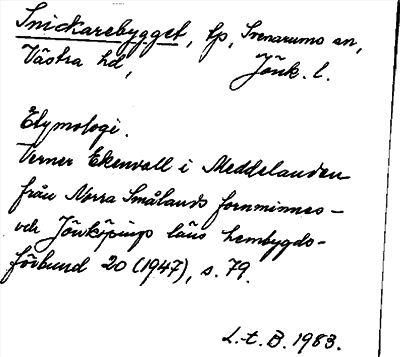 Snickarebygget, tp, Svenarums sn,
Västra hd, Jönk. l.
Etymologi.
Verner Ekenvall i Meddelanden
från Norra Smålands fornminnes-
och Jönköpings läns hembygds-
förbund 20 (1947), s. 79.
L.t. B. 1983.